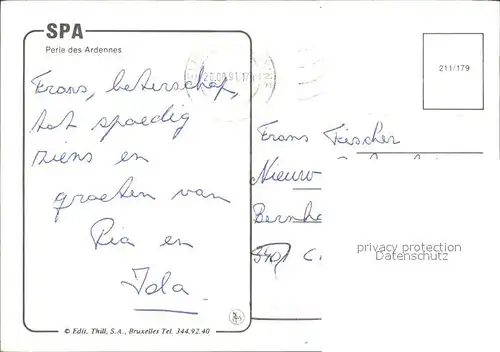 SPA
Perle des Ardennes
Frans, beterschap,
tot spoedig
ziens en
groeten van
Ria en
Ida.
© Edit. Thill, S.A., Bruxelles Tel. 344.92.40
211/179
Frans Fischer
Nieuw
Bernha
5401
privacy protection
Datenschutz